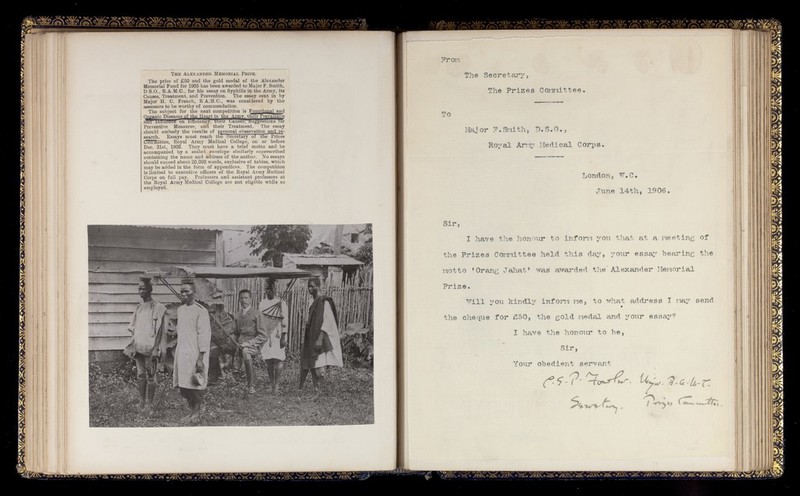 THE ALEXANDER MEMORIAL PRIZE.
The prize of £50 and the gold medal of the Alexander
Memorial Fund for 1905 has been awarded to Major F. Smith,
D.S.O., R.A.M.C., for his essay on Syphilis in the Army, its
Causes, Treatment, and Prevention. The essay sent in by
Major H. C. French, R.A.M.C., was considered by the
assessors to be worthy of commendation.
The subject for the next competition is Functional and
Organic Diseases of the Heart in the Army, their
Influence on Efficiency, their Causes, Suggestions for
Preventive Measures, and their Treatment. The essay
should embody the results of personal observation and re-
search. Essays must reach the Secretary of the Prizes
Committee, Royal Army Medical College, on or before
Dec. 31st, They must have a brief motto and be
accompanied by a sealed envelope similarly superscribed
containing the name and address of the author. No essays
should exceed about 20,000 words, exclusive of tables, which
may be added in the form of appendices. The competition
is limited to executive officers of the Royal Army Medical
Corps on full pay. Professors and assistant professors at
the Royal Army Medical College are not eligible while so
employed.
From
The Secretary,
The Prizes Committee.
To
Major F.Smith, D.S.O.,
Royal Army Medical Corps.
London, W.C.
June 14th, 1906.
Sir,
I have the honour to inform you that at a meeting of
the Prizes Committee held this day, your essay bearing the
motto 'Orang Jahat' was awarded the Alexander Memorial
Prize.
Will you kindly inform me, to what address I may send
the cheque for £50, the gold medal and your essay?
I have the honour to be,
Sir,
Your obedient servant
Fowler. Major. R.A.M.C.
Secretary. Prizes Committee.